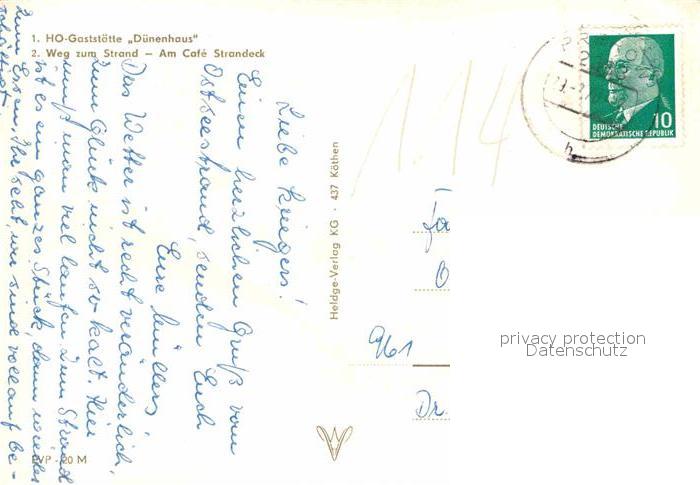 1. HO-Gaststötte „Dünenhaus"
2. Weg zum Strand – Am Café Strandeck
Liebe Kriegers!
Einen herzlichen Gruß vom
Ostseestrand, senden Euch
Eure Müllers
Das Wetter ist recht veränderlich,
zum Glück nicht so kalt. Hier
muß man viel laufen. Zum Strand
ist es ein ganzes Stück, dann wieder
zum Essen. Ihr seht, wir sind vollauf be-
schäftigt.
EVP -20 M
Heldge-Verlag KG · 437 Köthen
1.14
DEUTSCHE
DEMOKRATISCHE REPUBLIK
10
Fa
O
961
Dr.
privacy protection
Datenschutz